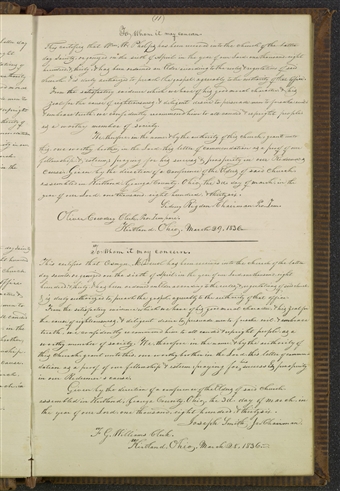 (11)
To Whom it may concern.
This certifies that Wm. W. Phelps has been received into the church of the Latter
day Saints, organized on the sixth of April in the year of our Lord eighteen hundred
hundred, thirty, & has been ordained an Elder according to the rules, & regulations of said
church & is duly authorized to preach the gospel agreeably to the authority of that office.
From the satisfactory evidence which we have of his good moral character, & his
zeal for the cause of righteousness, & diligent desire to persuade men to forsake evil
and embrace truth, we confidently recommend him to all candid & upright people as
a worthy member of society.
We therefore in the name, & by the authority of this church, grant unto
this, our worthy brother in the Lord, this letter of commendation as a proof of our
fellowship, & esteem; praying for his success, & prosperity in our Redeemer's
cause. Given by the direction of a conference of the Elders of said church
assembled in Kirtland, Geauga County, Ohio, the 3rd day of March in the
year of our Lord one thousand eight hundred, & thirty six.
Sidney Rigdon Chairman Pro. Tem.
Oliver Cowdery Clerk, Pro. Tempore
Kirtland, Ohio, March 29, 1836.
To Whom it may concern.
This certifies that has been received into the church of the Latter
day Saints, organized on the sixth of April in the year of our Lord one thousand eight
hundred, & thirty, & has been ordained according to the rules, & regulations of said church
& is duly authorized to preach the gospel agreeably to the authority of that office.
From the satisfactory evidence which we have of his good moral character, & his zeal for
the cause of righteousness, & diligent desire to persuade men to forsake evil, & embrace
truth, we confidently recommend him to all candid, & upright people, as a
worthy member of society. We, therefore, in the name, & by the authority of
this church, grant unto this, our worthy brother in the Lord, this letter of commend-
ation as a proof of our fellowship, & esteem; praying for his success, & prosperity
in our Redeemer's cause.
Given by the direction of a conference of the Elders of said church
assembled in Kirtland, Geauga County, Ohio, the 3rd. day of March in
the year of our Lord one thousand eight hundred, & thirty six.
Joseph Smith, Jr. Chairman.
F. G. Williams Clerk.
Kirtland, Ohio, March 28, 1836.